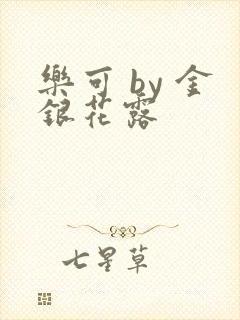 樂可 by 金
銀花露
七星草